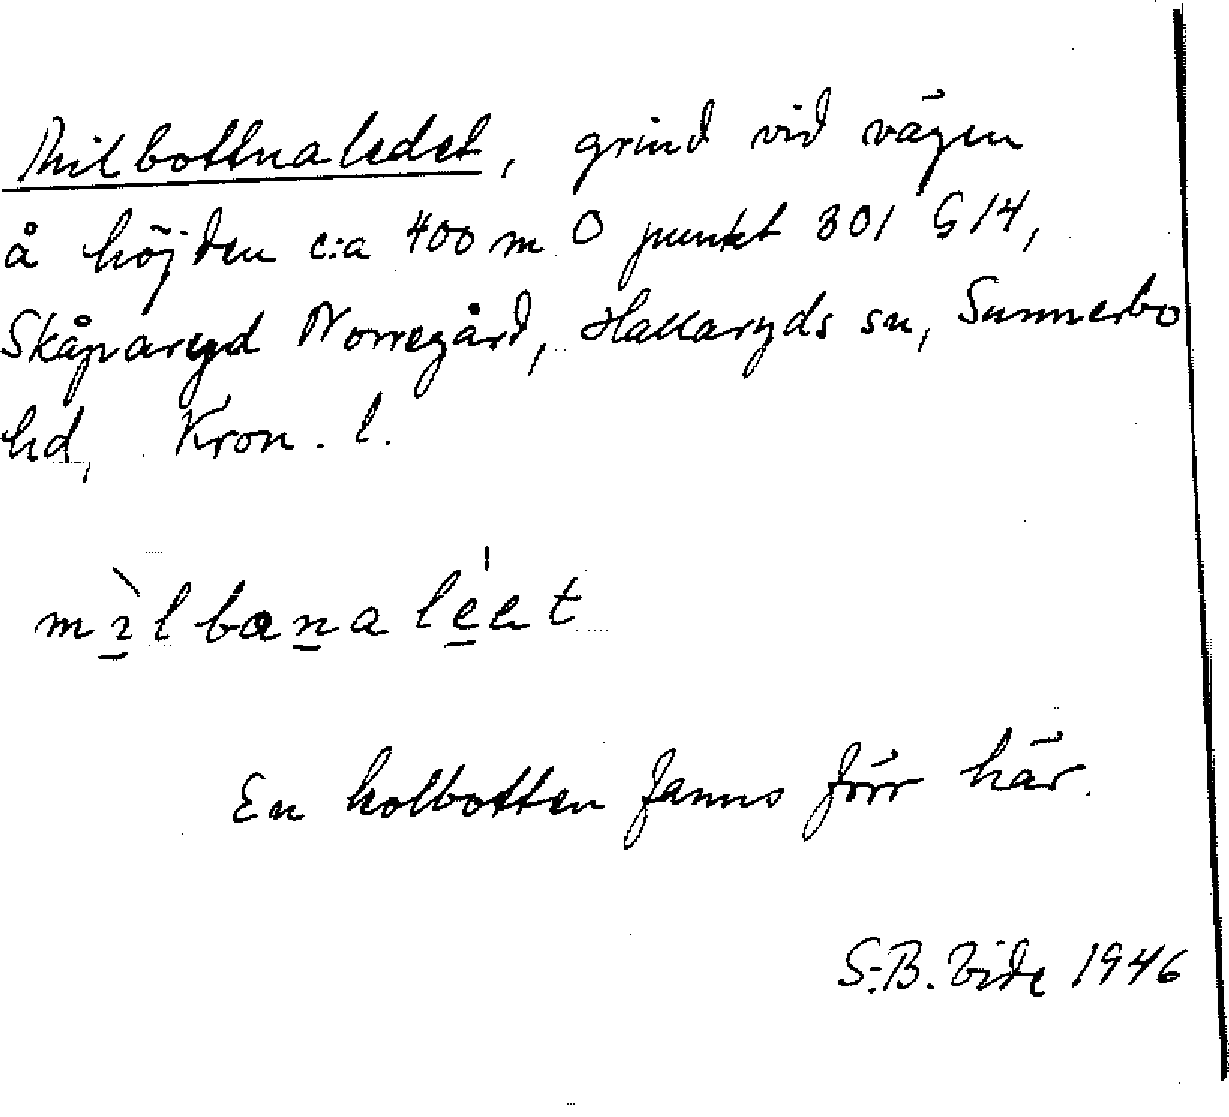 Milbottnaledet, grind vid vägen
å höjden c:a 400 m O punkt 301 G 14,
Skåparyd Norregård, Hallaryds sn, Sunnerbo
hd, Kron. l.
mìlbanaléet
En kolbotten fanns förr här.
S.-B. Vide 1946